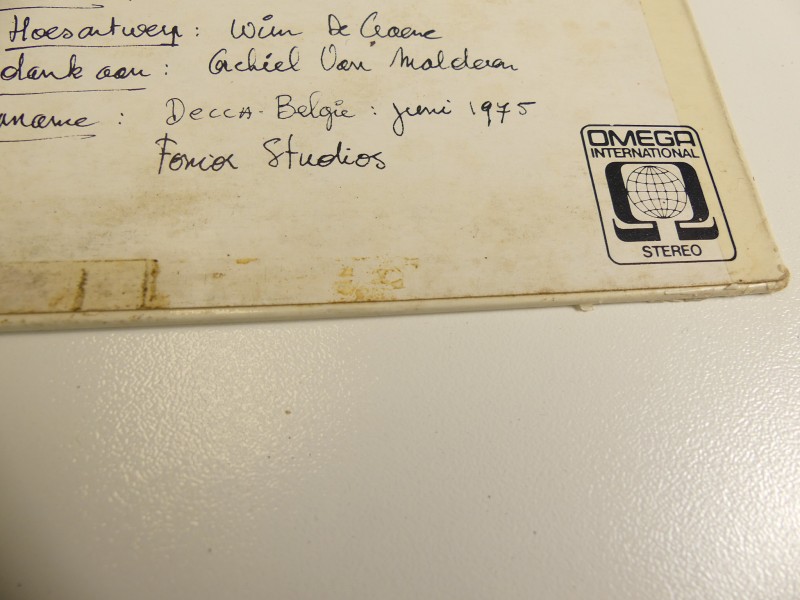 Hoesontwerp: Wim De Craene
dank aan: Achiel Van Malderen
name: Decca-België: juni 1975
Fonior Studios
OMEGA
INTERNATIONAL
STEREO